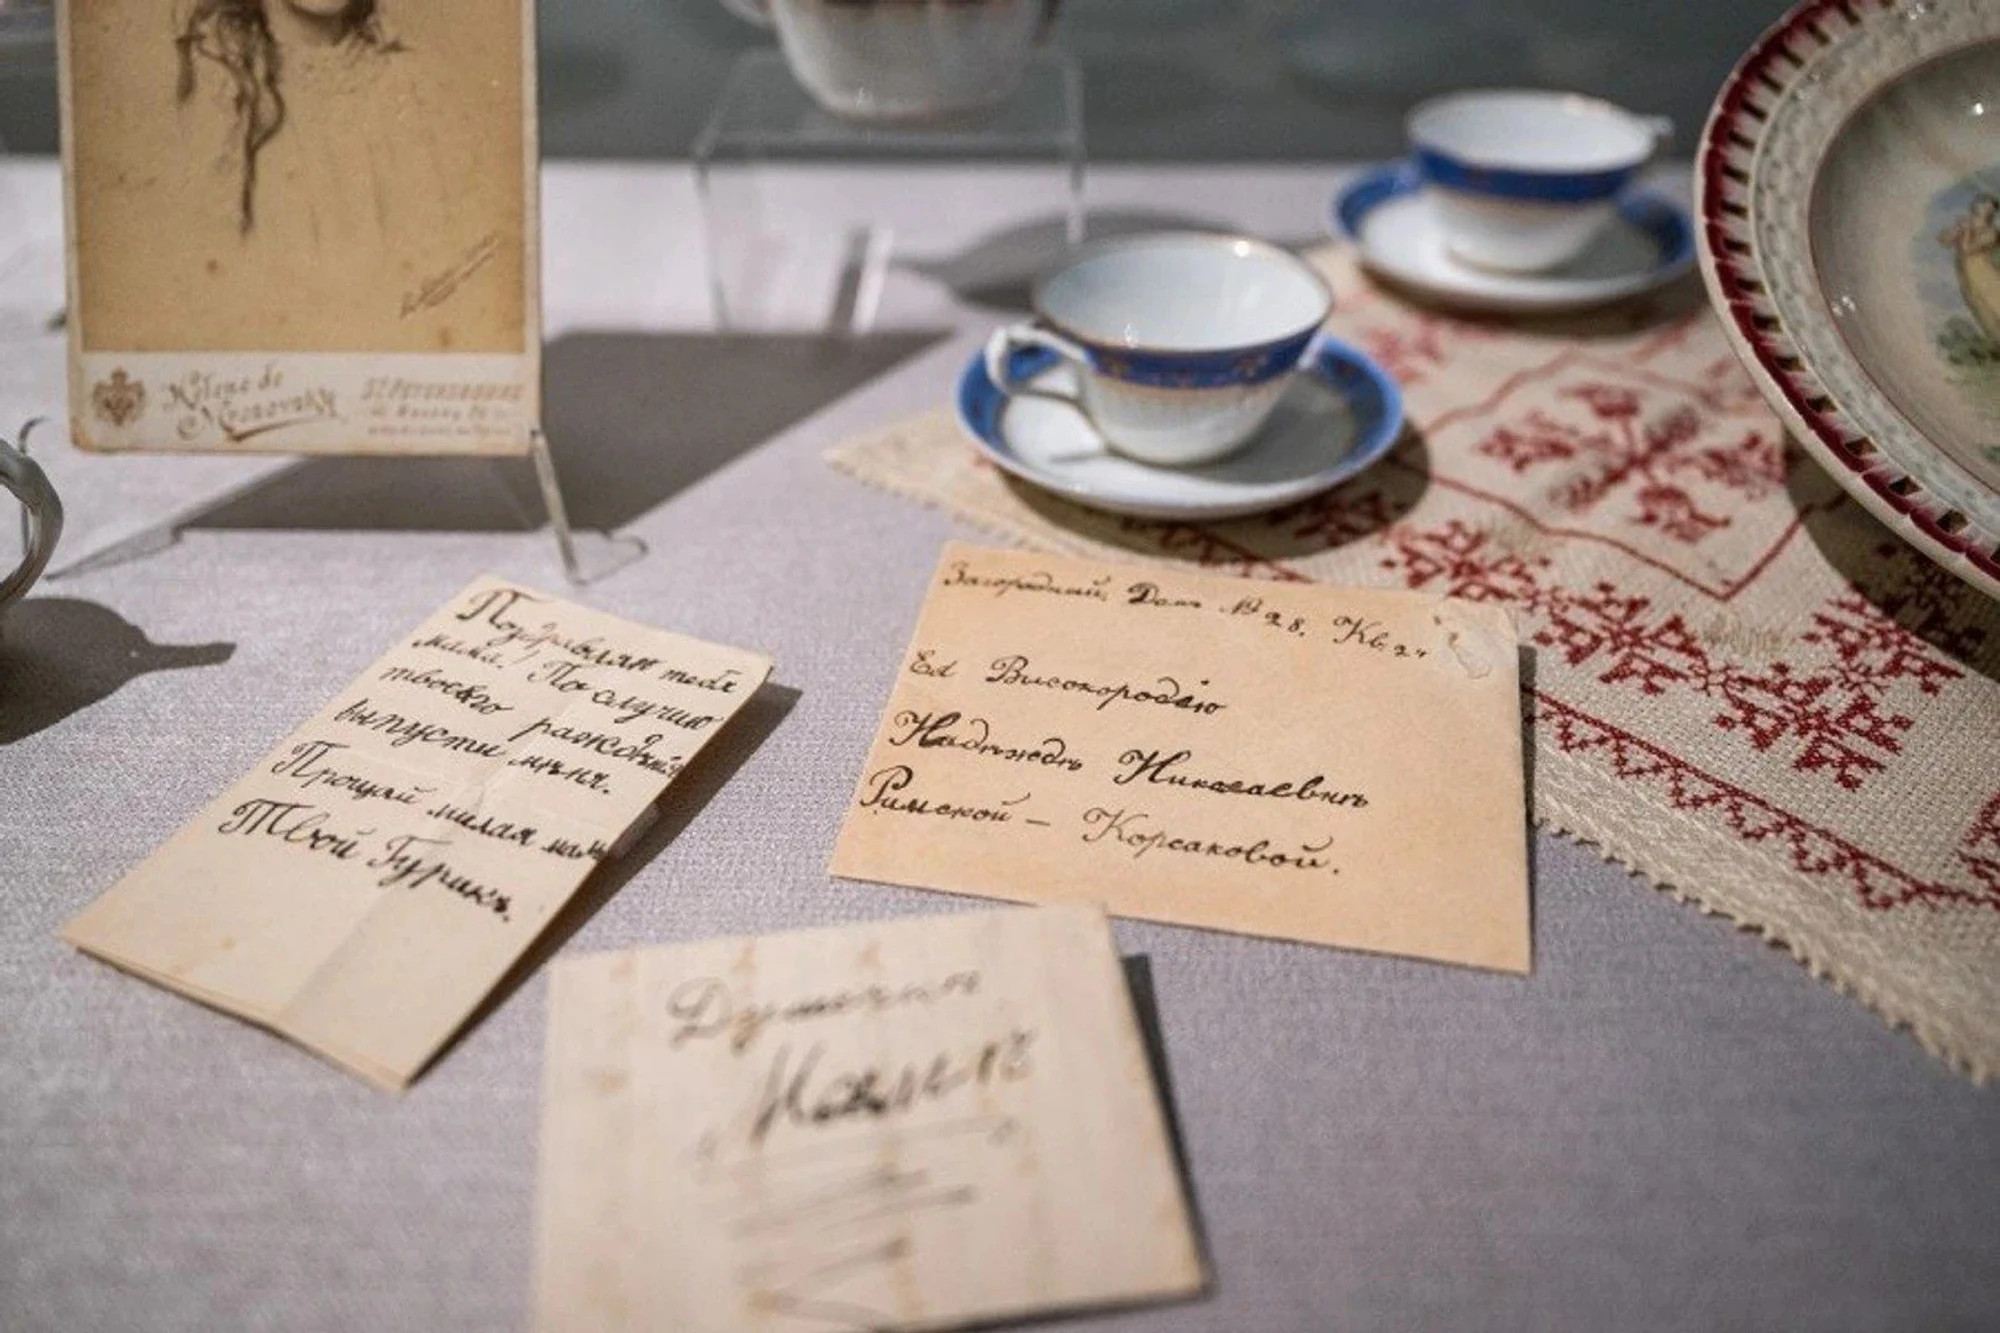 Hélène de
Mrosovsky
ST PETERSBOURG
Поздравляю тебя
мама. По случию
твоего
выпусти мѣня.
Прощай милая
Твой Гурикъ.
Загородный, Домъ № 28. Кв. 24
Ея Високородію
Надѣждѣ Николаевнѣ
Римской – Корсаковой.
Душечкѣ
Мамѣ